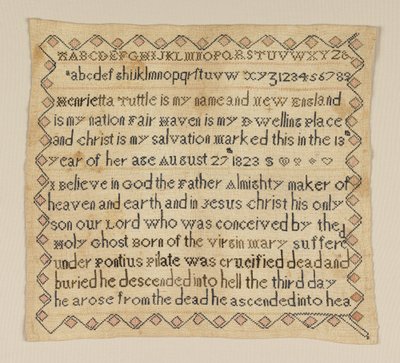 ABCDEFGHIJKLMNOPQRSTUVWXYZ&
abcdefghijklmnopqrſtuvwxyz123456789
Henrietta Tuttle is my name and New England
is my nation Fair Haven is my Dwelling Place
and Christ is my salvation marked this in the 13th
year of her age August 27th 1823
I Believe in God the Father Almighty maker of
heaven and earth and in Jesus Christ his only
son our Lord who was conceived by the
Holy Ghost Born of the virgin mary sufferd
under Pontius Pilate was crucified dead and
buried he descended into hell the third day
he arose from the dead he ascended into hea